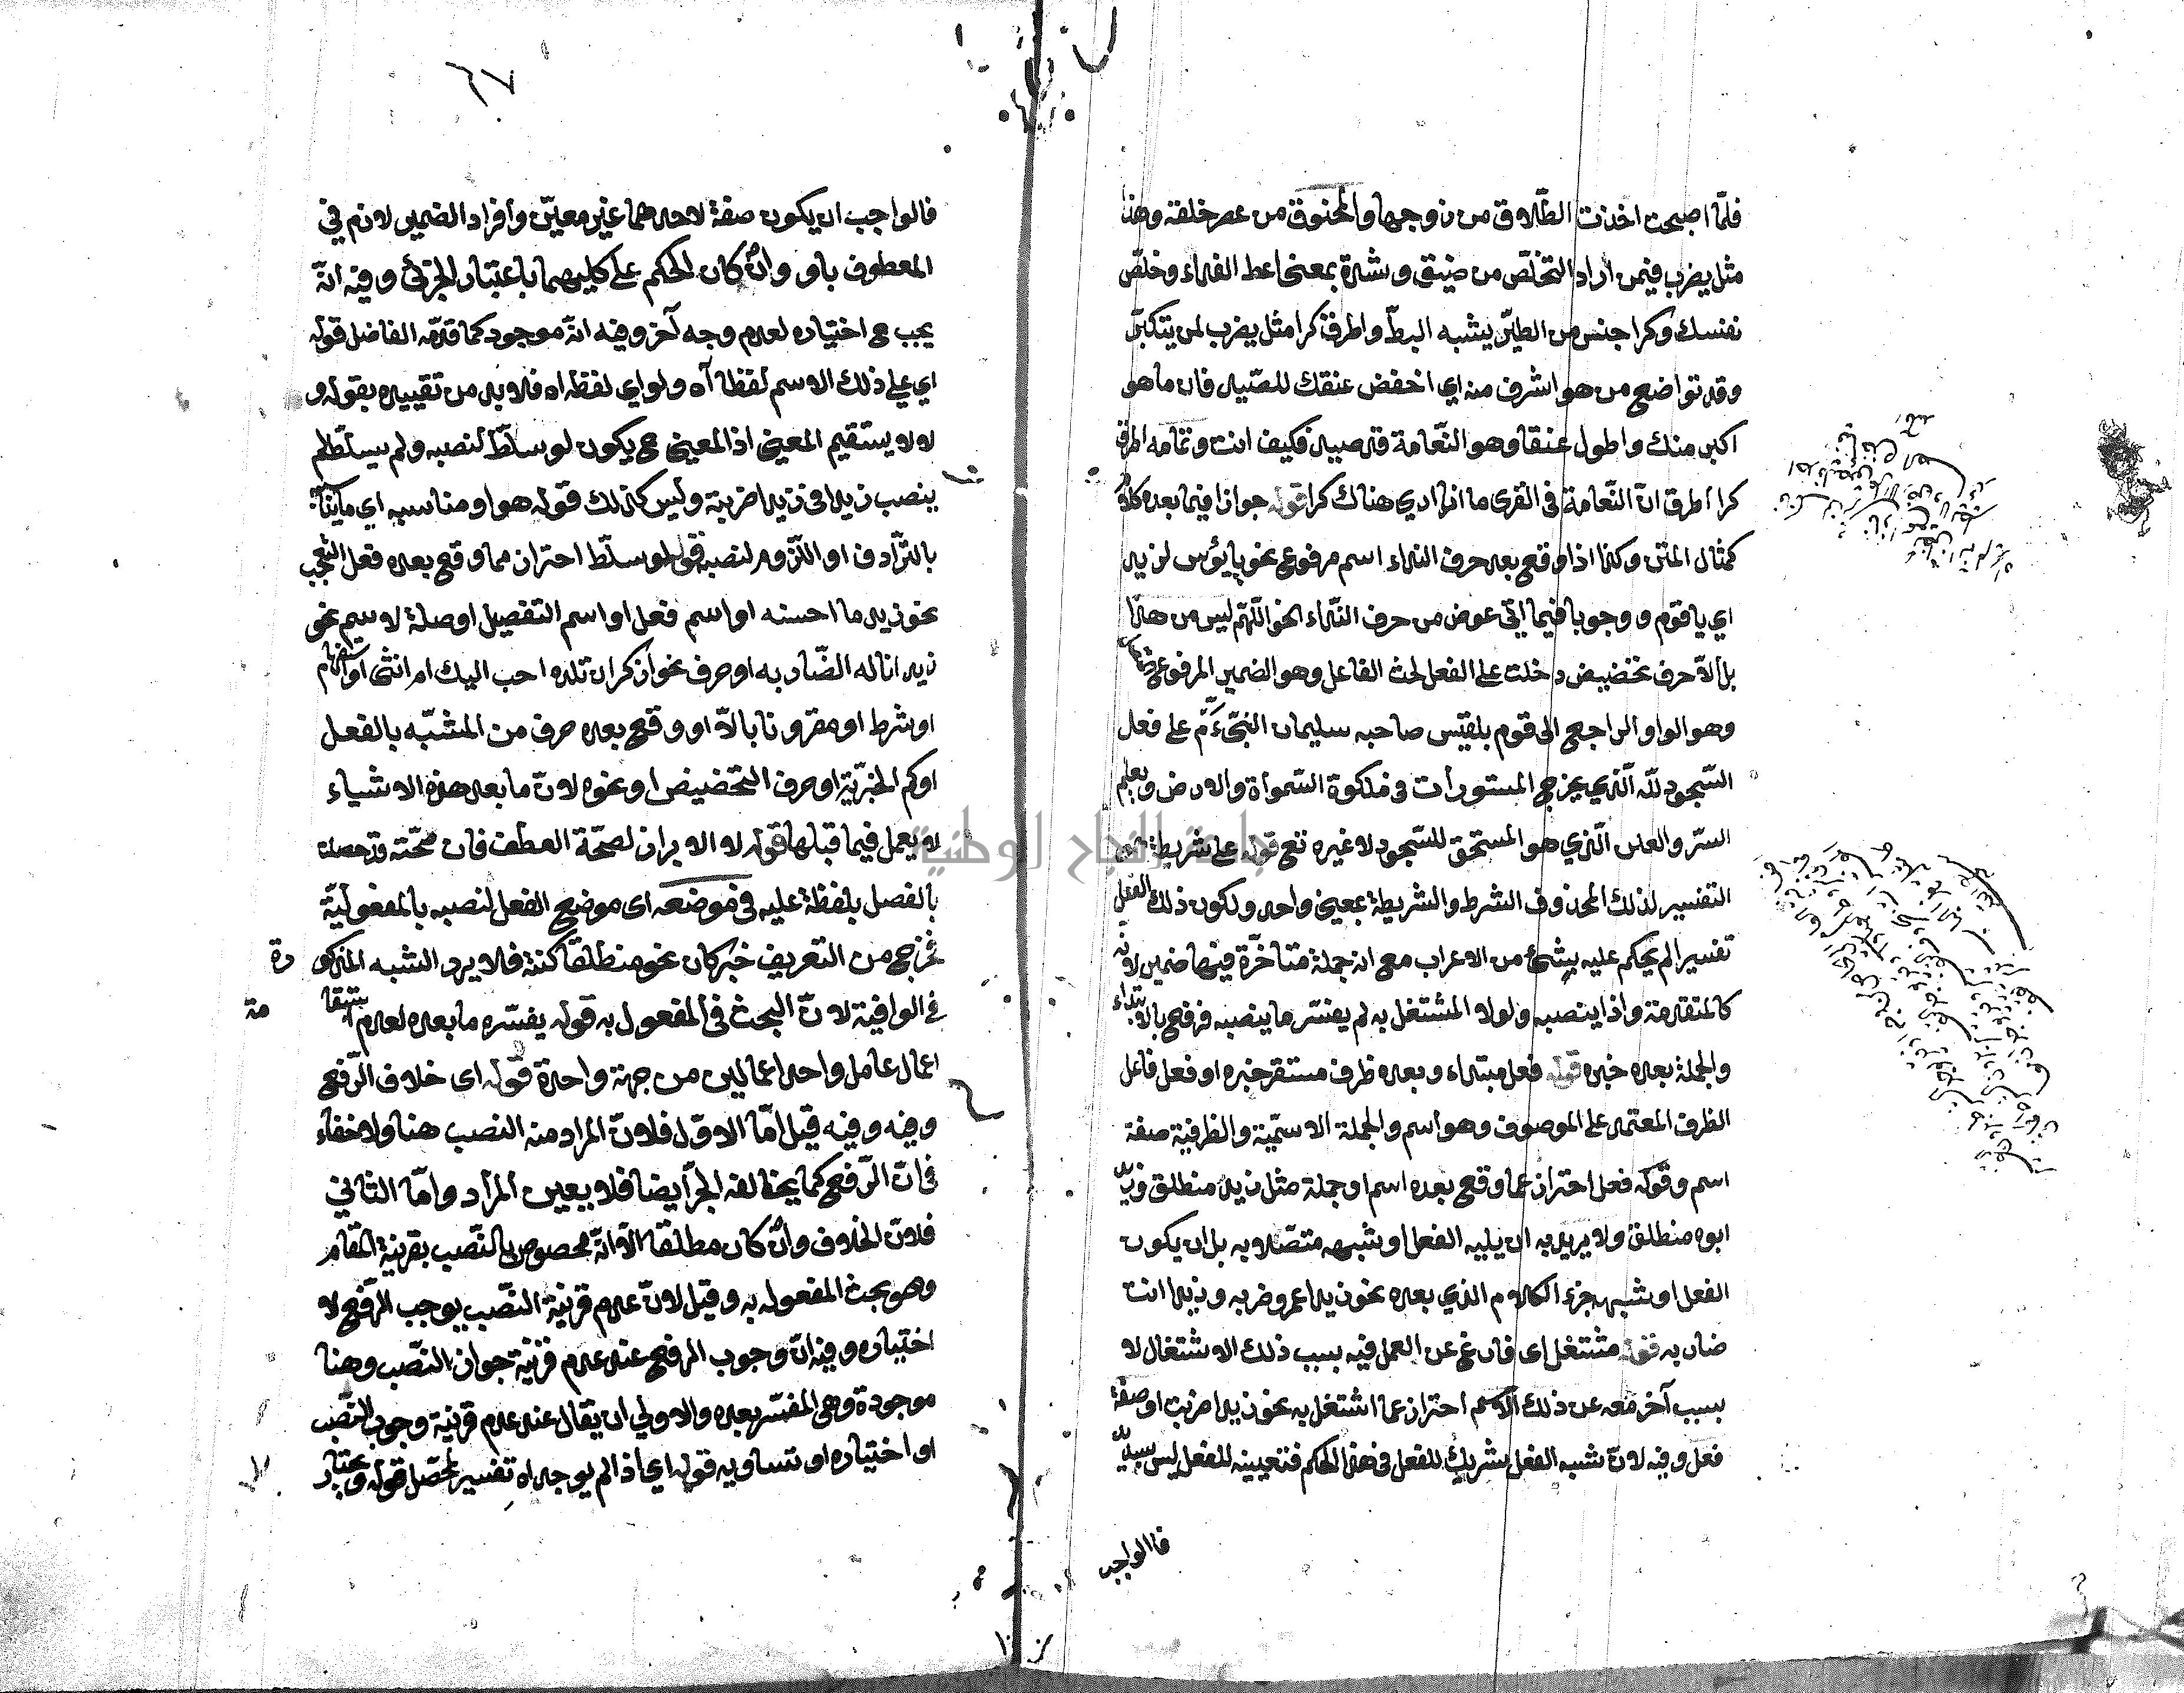 فلمّا اصبحت اخذت الطّلاق من زوجها والمخنوق من عصر خلقه وهذا
مثل يضرب فيمن اراد التخلّص من ضيق وشدة بمعنى اعط الفداء وخلّص
نفسك وكرا جنس من الطير يشبه البطّ واطرق كرا مثل يضرب لمن يتكبّر
وقد تواضع من هو اشرف منه اي اخفض عنقك للصّيد فان ما هو
اكبر منك واطول عنقا وهو النّعامة قد صيد فكيف انت وتمامه اطرق
كرا اطرق ان النّعامة في القرى ما ان ارى هناك كرا قوله جوازا فيما بعده كلام
كمثال المتن وكذا اذا وقع بعد حرف النداء اسم مرفوع نحو يا بؤس لزيد
اي يا قوم ووجوبا فيما اتى عوض من حرف النّداء نحو اللّهمّ ليس من هذا
بل ألاّ حرف تخضيض دخلت على الفعل لحث الفاعل وهو الضمير المرفوع
وهو الواو الراجع الى قوم بلقيس صاحبه سليمان النبيّ ءم على فعل
السّجود للّه الّذي يخرج المستورات في ملكوة السّمواة والارض ويعلم
السّر والعلن الّذي هو المستحق للسّجود لا غيره تع قوله على شريطة
التفسير لذلك المحذوف الشرط والشريطة بمعنى واحد ولكون ذلك الفعل
تفسيرا لم يحكم عليه بشئ من الاعراب مع انه جملة متأخّرة فيها ضمير لانّه
كالمتقدمة واذا ينصبه ولولا المشتغل به لم يفسّر ما ينصبه فرفع بالابتداء
والجملة بعده خبره قوله فعل مبتداء وبعده ظرف مستقر خبره او فعل فاعل
الظرف المعتمد على الموصوف وهو اسم والجملة الاسميّة والظرفية صفة
اسم وقوله فعل احتراز عما وقع بعده اسم او جملة مثل زيد منطلق وزيد
ابوه منطلق ولا يريد به ان يليه الفعل او شبهه متصلا به بل ان يكون
الفعل او شبهه جزء الكلام الذي بعده نحو زيدا عمرو ضربه وزيدا انت
ضاربه قوله مشتغل اى فارغ عن العمل فيه بسبب ذلك الاشتغال لا
بسبب آخر منعه عن ذلك الاسم احتراز عما اشتغل به نحو زيدا ضربت او صفة
فعل وفيه لان شبه الفعل شريك للفعل في هذا الحكم فتعيينه للفعل ليس بسديد
فالواجب
٦٧
فالواجب ان يكون صفة لاحدهما غير معيّن وافراد الضمير لازم في
المعطوف باو وان كان الحكم على كليهما باعتبار الجزئ وفيه انّه
يجب ح اختياره لعدم وجه آخر وفيه انّه موجود كما قدّمه الفاضل قوله
اي على ذلك الاسم لفظا آه ولو اي لفظه اه فلا بد من تقييده بقوله و
لا لا يستقيم المعنى اذ المعنى ح يكون لو سلّط لنصبه ولم يسلّط لم
ينصب زيدا في زيدا ضربته وليس كذلك قوله هو او مناسبه اي ما يناسبه
بالتّرادف او اللّزوم لنصبه قوله لو سلّط احتراز مما وقع بعده فعل التعجب
نحو زيد ما احسنه او اسم فعل او اسم التفصيل او صلة لاسم نحو
زيد انا له الضّاربه او حرف نحو أذكر ان تلده احب اليك ام انثى او استفهام
او شرط او مقرونا بالاّ او وقع بعده حرف من المشبّه بالفعل
او كم الخبريّة او حرف التخضيض او نحوه لانّ ما بعد هذه الاشياء
لا يعمل فيما قبلها قوله لا لا براز لصحّة العطف فان صحّته قد حصلت
بالفصل بلفظة عليه في موضعه اى موضع الفعل لنصبه بالمفعوليّة
فخرج من التعريف خبر كان نحو منطلقا كنته فلا يرد الشبه المذكورة
في الوافية لانّ البحث في المفعول به قوله يفسّره ما بعده لعدم استقامة
اعمال عامل واحد اعمالين من جهة واحدة قوله اى خلاف الرّفع
وفيه وفيه قيل امّا الاوّل فلانّ المراد منه النصب هنا ولا خفاء
في انّ الرّفع كما يخالفه الجرّ ايضا فلا يعين المراد وامّا الثاني
فلانّ الخلاف وان كان مطلقا الاّ انّه مخصوص بالنّصب بقرينة المقام
وهو بحث المفعول به وقيل لانّ عدم قرينة النّصب يوجب الرّفع لا
اختياره وفيه انّ وجوب الرفع عند عدم قرينة جواز النّصب وهنا
موجودة وهي المفسّر بعده والاولى ان يقال عند عدم قرينة وجوب النّصب
او اختياره او تساويه قوله اي اذا لم يوجد اه تفسير لمحصّل قوله ويختار
جامعة النجاح الوطنية